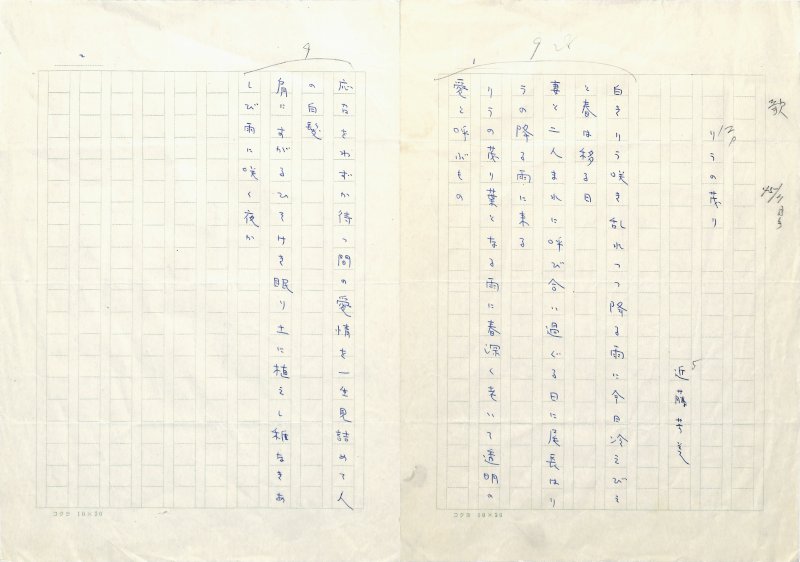 歌
45/7月号
12P
りらの茂り
5
近藤芳美
9 28
1
白きりら咲き乱れつつ降る雨に今日冷えびえ
と春は移る日
妻と二人まれに呼び合い過ぐる日に尾長はり
らの降る雨に来る
りらの茂り葉となる雨に春深く老いて透明の
愛と呼ぶもの
9
2
応えさわずか待つ間の愛情を一生見詰めて人
の白髪
肩にすがるひそけき眠り土に植えし種なきあ
しび雨に咲く夜か
コクヨ 10×20
コクヨ 10×20